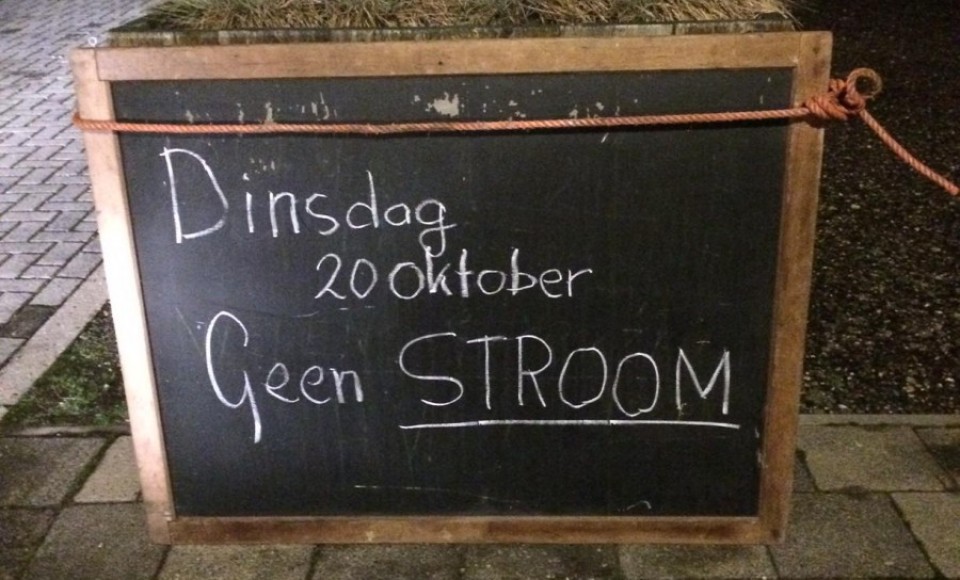 Dinsdag
20 Oktober
Geen STROOM